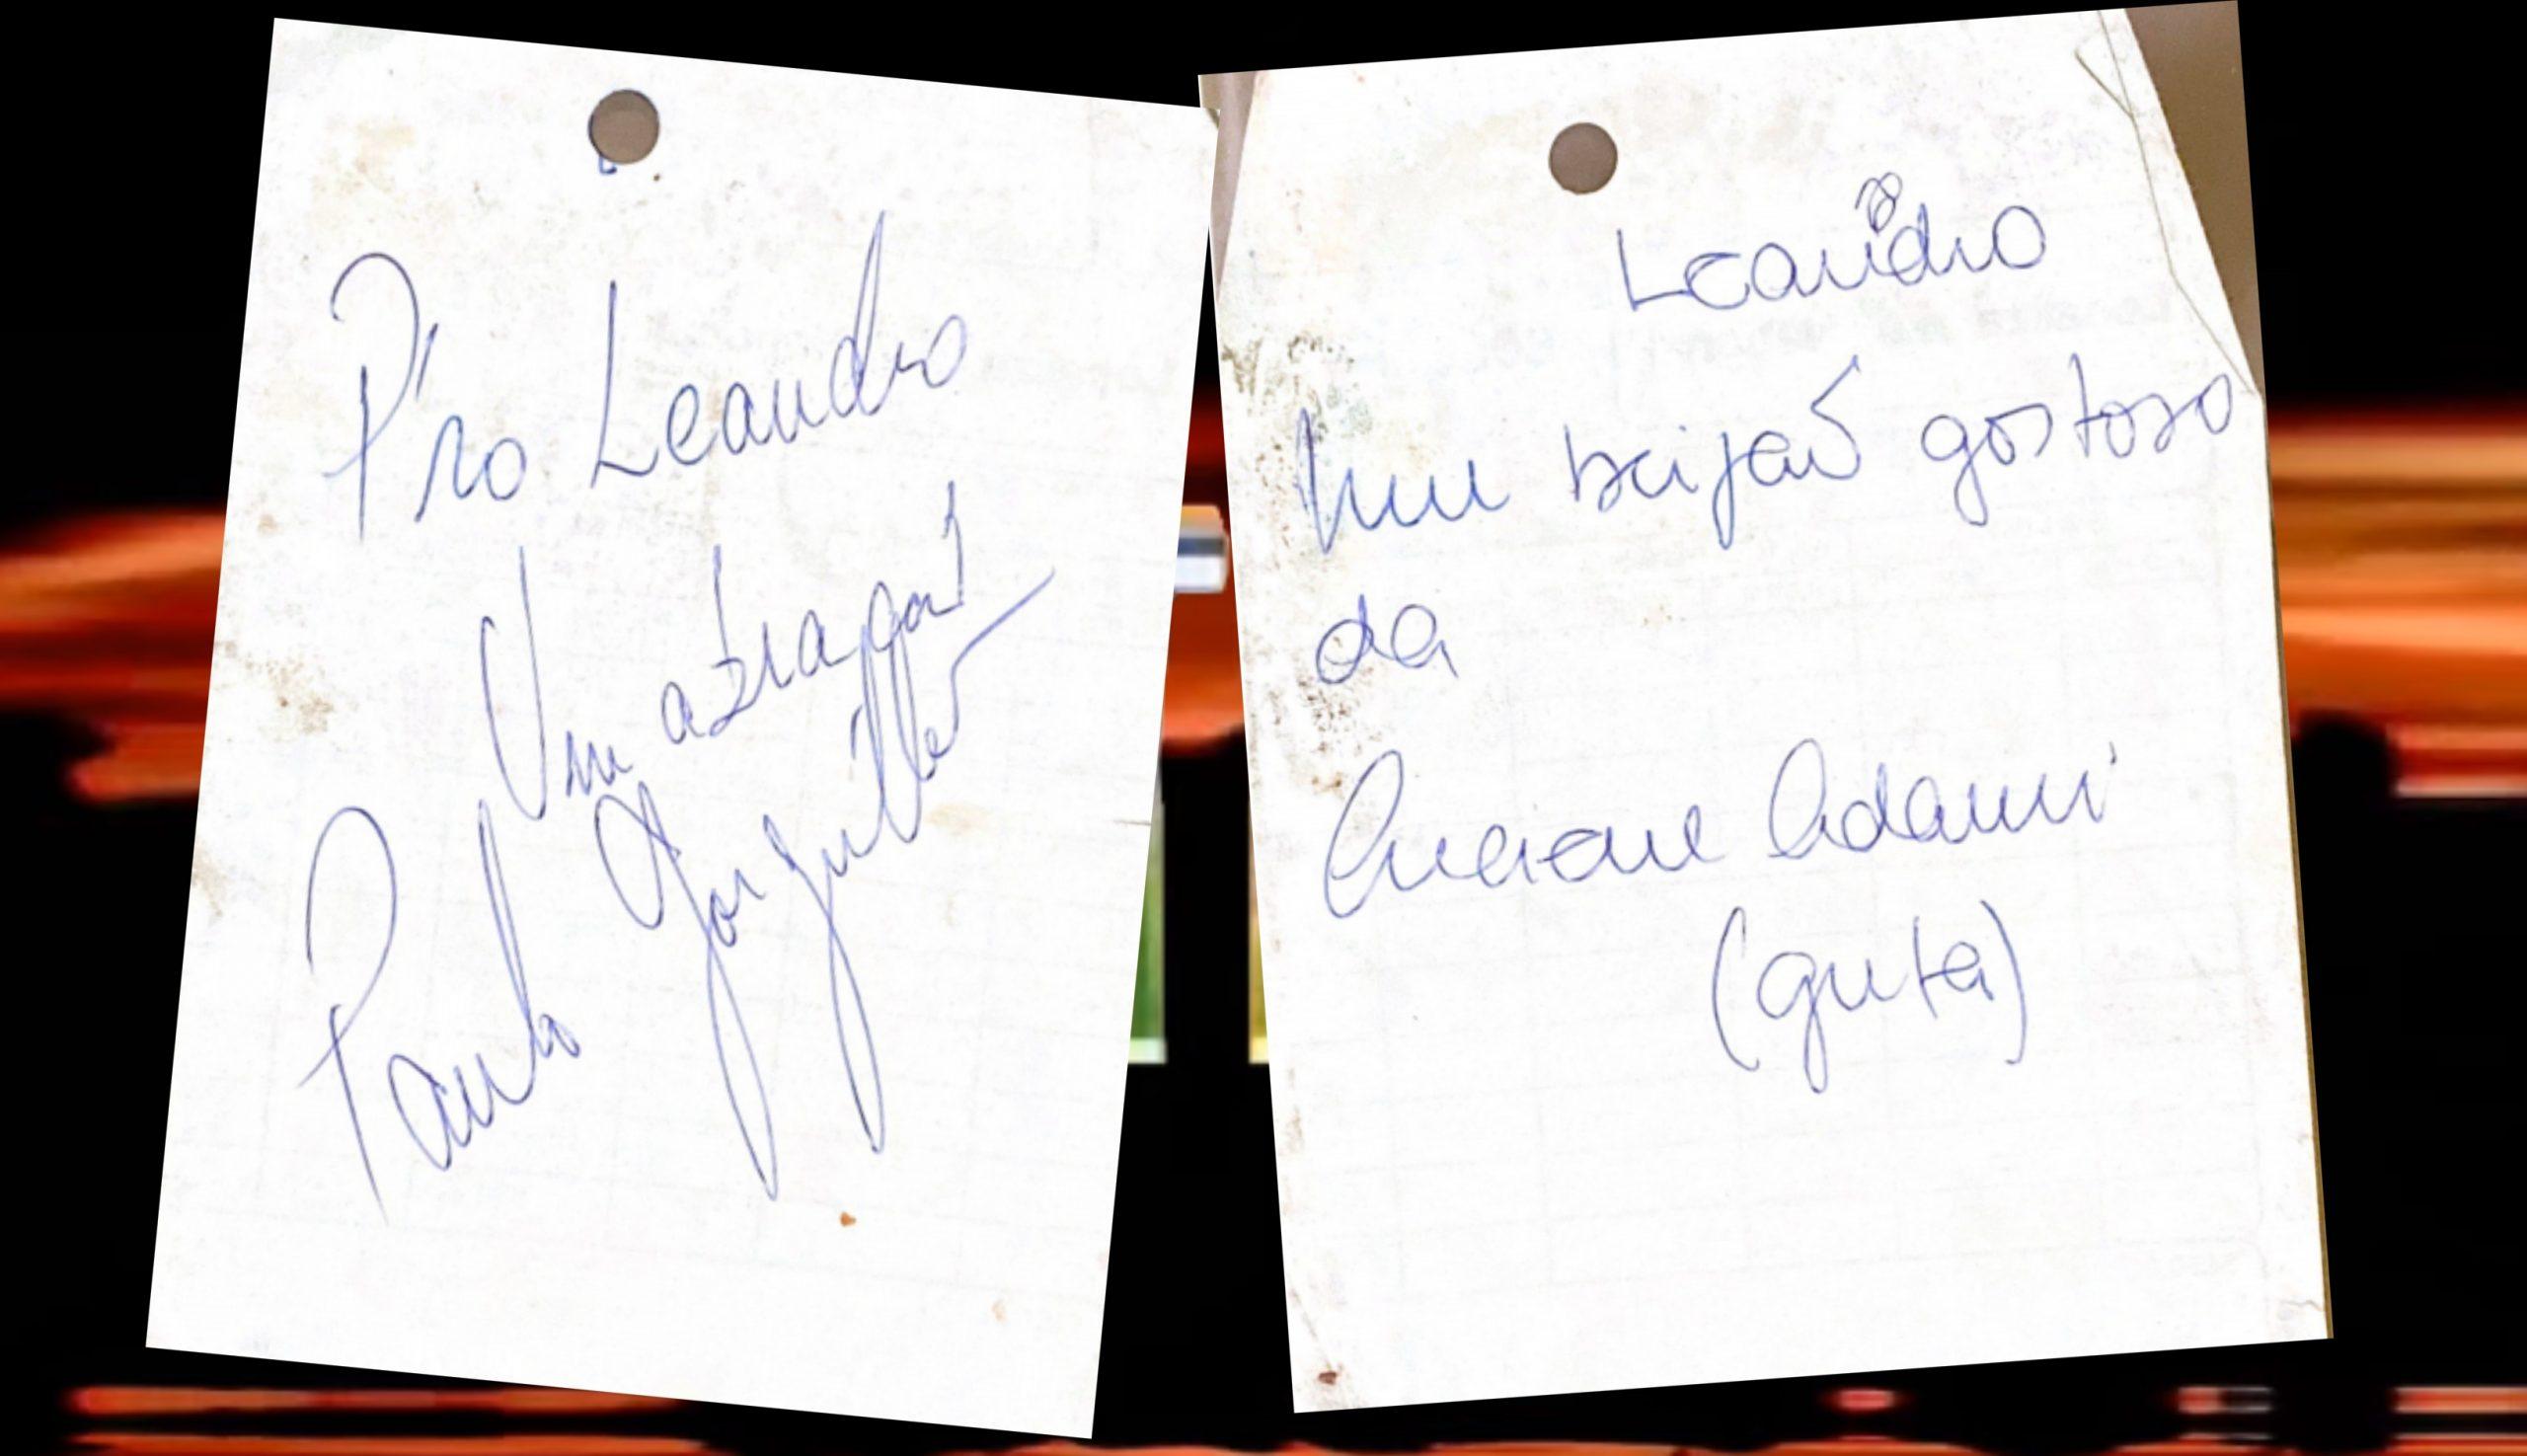 Pro Leandro
Um abração
Paulo Gorgulho
Leandro
um beijão gostoso
da
Luciene Adami
(guta)